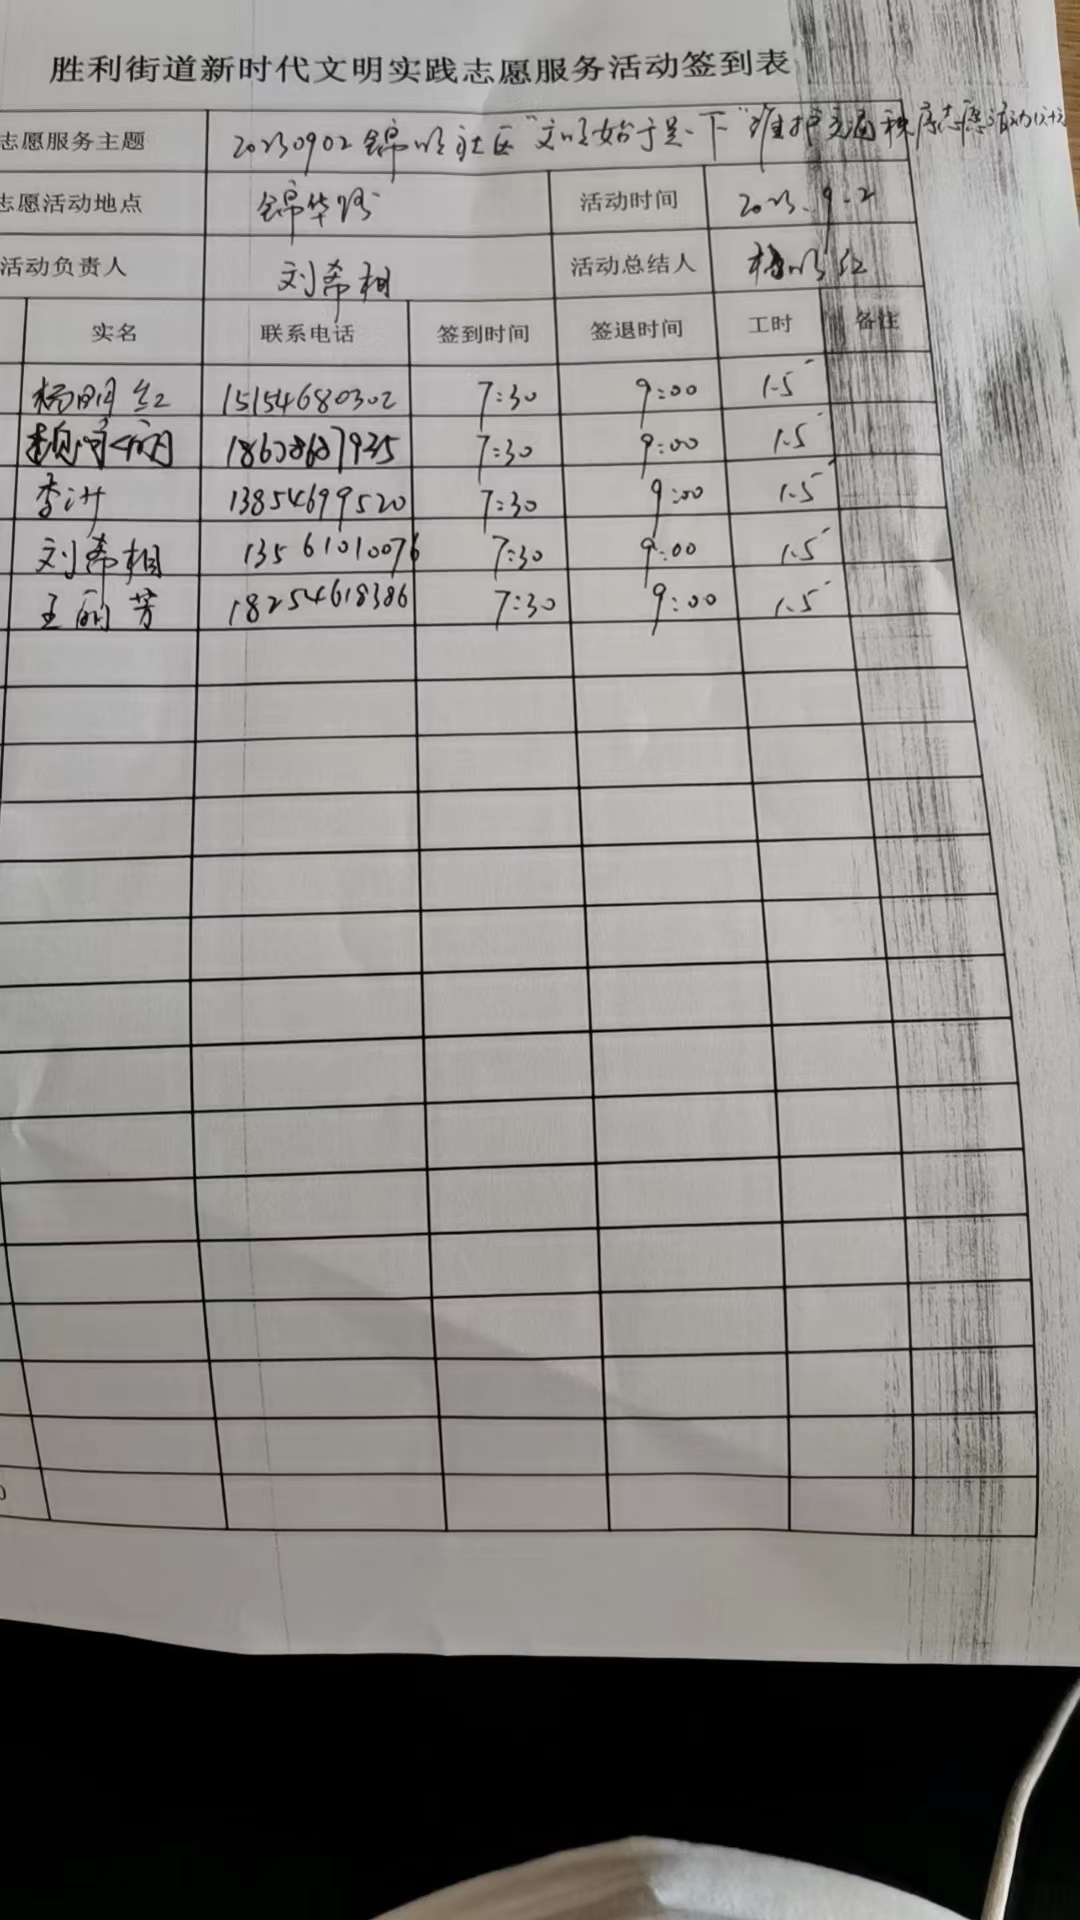 胜利街道新时代文明实践志愿服务活动签到表
志愿服务主题 20230902锦明社区"文明始于足下"维护交通秩序志愿活动
志愿活动地点 锦华路 活动时间 2023.9.2
活动负责人 刘希相 活动总结人 杨明红
实名 联系电话 签到时间 签退时间 工时 备注
杨明红 15154680302 7:30 9:00 1.5
7:30 9:00 1.5
李洲 13854699520 7:30 9:00 1.5
刘希相 13561010076 7:30 9:00 1.5
王丽芳 18254618386 7:30 9:00 1.5